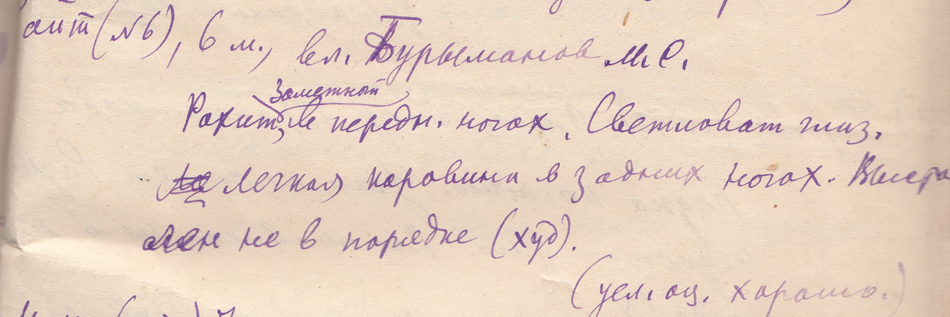 айт (№6), 6 м., вл. Бурыманов М.С.
Заметный
Рахит, в передн. ногах. Светловат глаз.
легкая коровина в задних ногах. Выстав
лен не в порядке (худ).
(усл. оц. хорошо.)